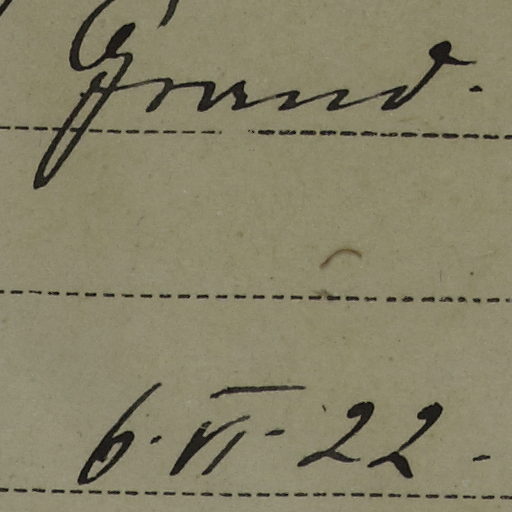 Grand.
6. VI. 22.